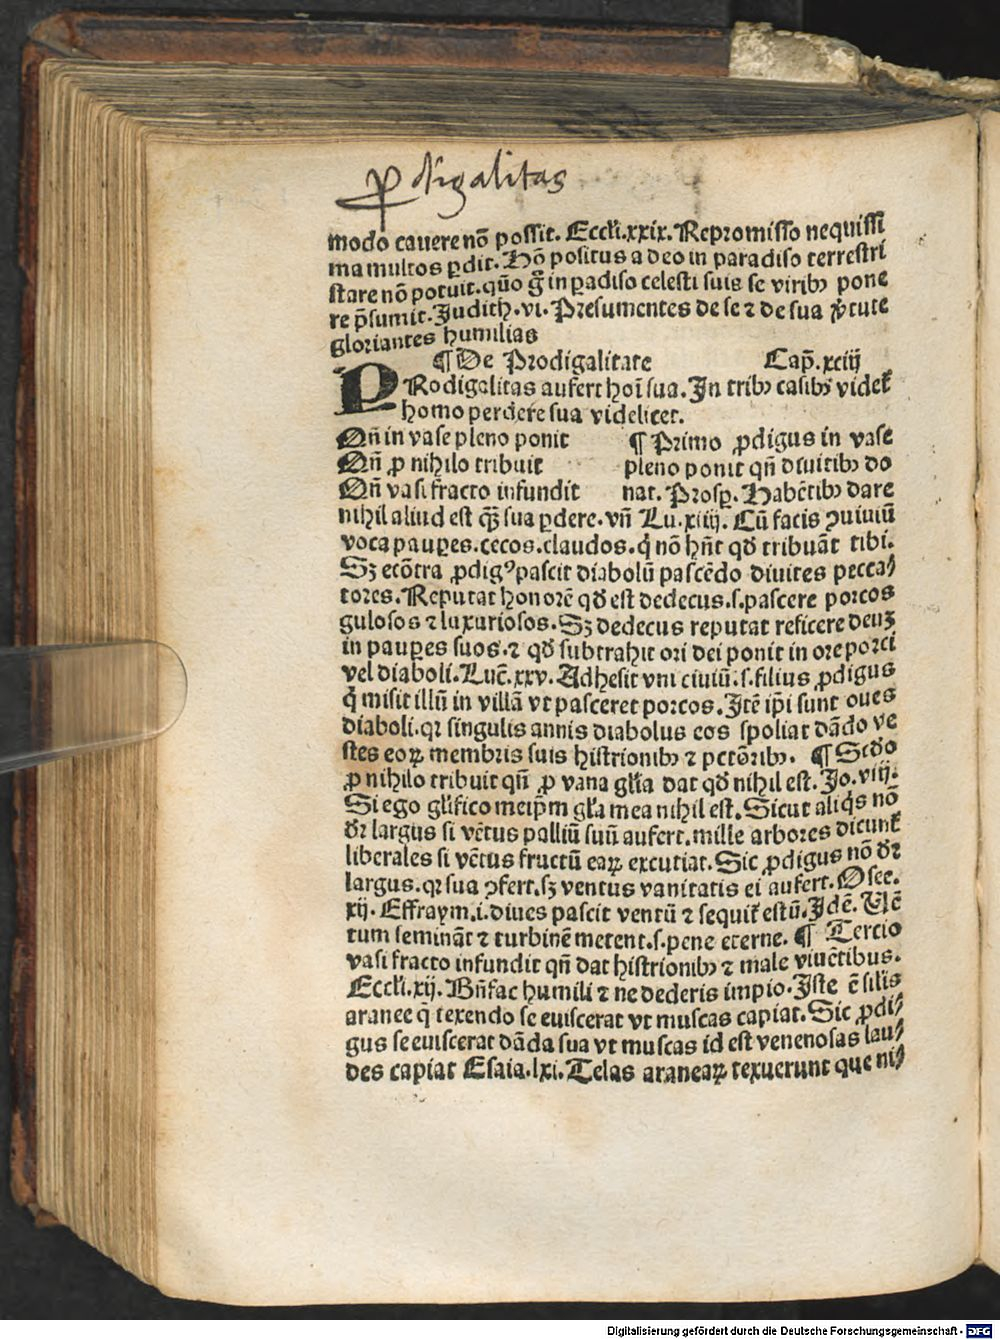 ꝓdigalitas
modo cauere nō possit. Eccľi.xxix. Repromisso nequissi
ma multos ꝑdit. Hō positus a deo in paradiso terrestri
stare nō potuit. quō g̃ in ꝑadiso celesti suis se virib⁹ pone
re p̄sumit. Judith.vi. Presumentes de se ⁊ de sua v̓tute
gloriantes humilias
¶ De Prodigalitate Cap̄. xciij
PRodigalitas aufert hoī sua. In trib⁹ casib⁹ videt̄
homo perdere sua videlicet.
Qn̄ in vase pleno ponit
Qn̄ ꝓ nihilo tribuit
Qn̄ vasi fracto infundit
¶ Primo ꝓdigus in vase
pleno ponit qn̄ diuitib⁹ do
nat. Prosꝑ. Habētib⁹ dare
nihil aliud est q̄ꝫ sua ꝑdere. vn̄ Lu.xiiij. Cū facis ꝯuiuiū
voca pauꝑes. cecos. claudos. q̇ nō hn̄t qđ tribuāt tibi.
Sꝫ ecōtra ꝓdig⁹ pascit diabolū pascēdo diuites pecca/
tores. Reputat honorē qđ est dedecus. s. pascere porcos
gulosos ⁊ luxuriosos. Sꝫ dedecus reputat reficere deuꝫ
in pauꝑes suos. ⁊ qđ subtrahit ori dei ponit in ore porci
vel diaboli. Luc̄. xxv. Adhesit vni ciuiū. s. filius ꝓdigus
q̇ misit illū in villā vt pasceret porcos. Itē ip̄i sunt oues
diaboli. qꝛ singulis annis diabolus eos spoliat dādo ve
stes eoꝝ membris suis histrionib⁹ ⁊ pctōrib⁹. ¶ Scd̄o
ꝓ nihilo tribuit qn̄ ꝓ vana gľia dat qđ nihil est. Jo. viij.
Si ego gľifico meip̄m gľa mea nihil est. Sicut aliq̇s nō
dꝛ largus si vētus palliū suū aufert. mille arbores dicunt̄
liberales si vētus fructū eaꝝ excutiat. Sic ꝓdigus nō dꝛ
largus. qꝛ sua ꝯfert. sꝫ ventus vanitatis ei aufert. Osee.
xij. Effraym. i. diues pascit ventū ⁊ sequit̄ estū. Idē. Vē
tum semināt ⁊ turbinē metent. s. pene eterne. ¶ Tercio
vasi fracto infundit qn̄ dat histrionib⁹ ⁊ male viuētibus.
Eccľi. xij. Bn̄fac humili ⁊ ne dederis impio. Iste ē siľis
aranee q̄ texendo se euiscerat vt muscas capiat. Sic ꝓdi/
gus se euiscerat dāda sua vt muscas id est venenosas lau/
des capiat Esaia. lxi. Telas araneaꝝ texuerunt que ni/
Digitalisierung gefördert durch die Deutsche Forschungsgemeinschaft - DFG